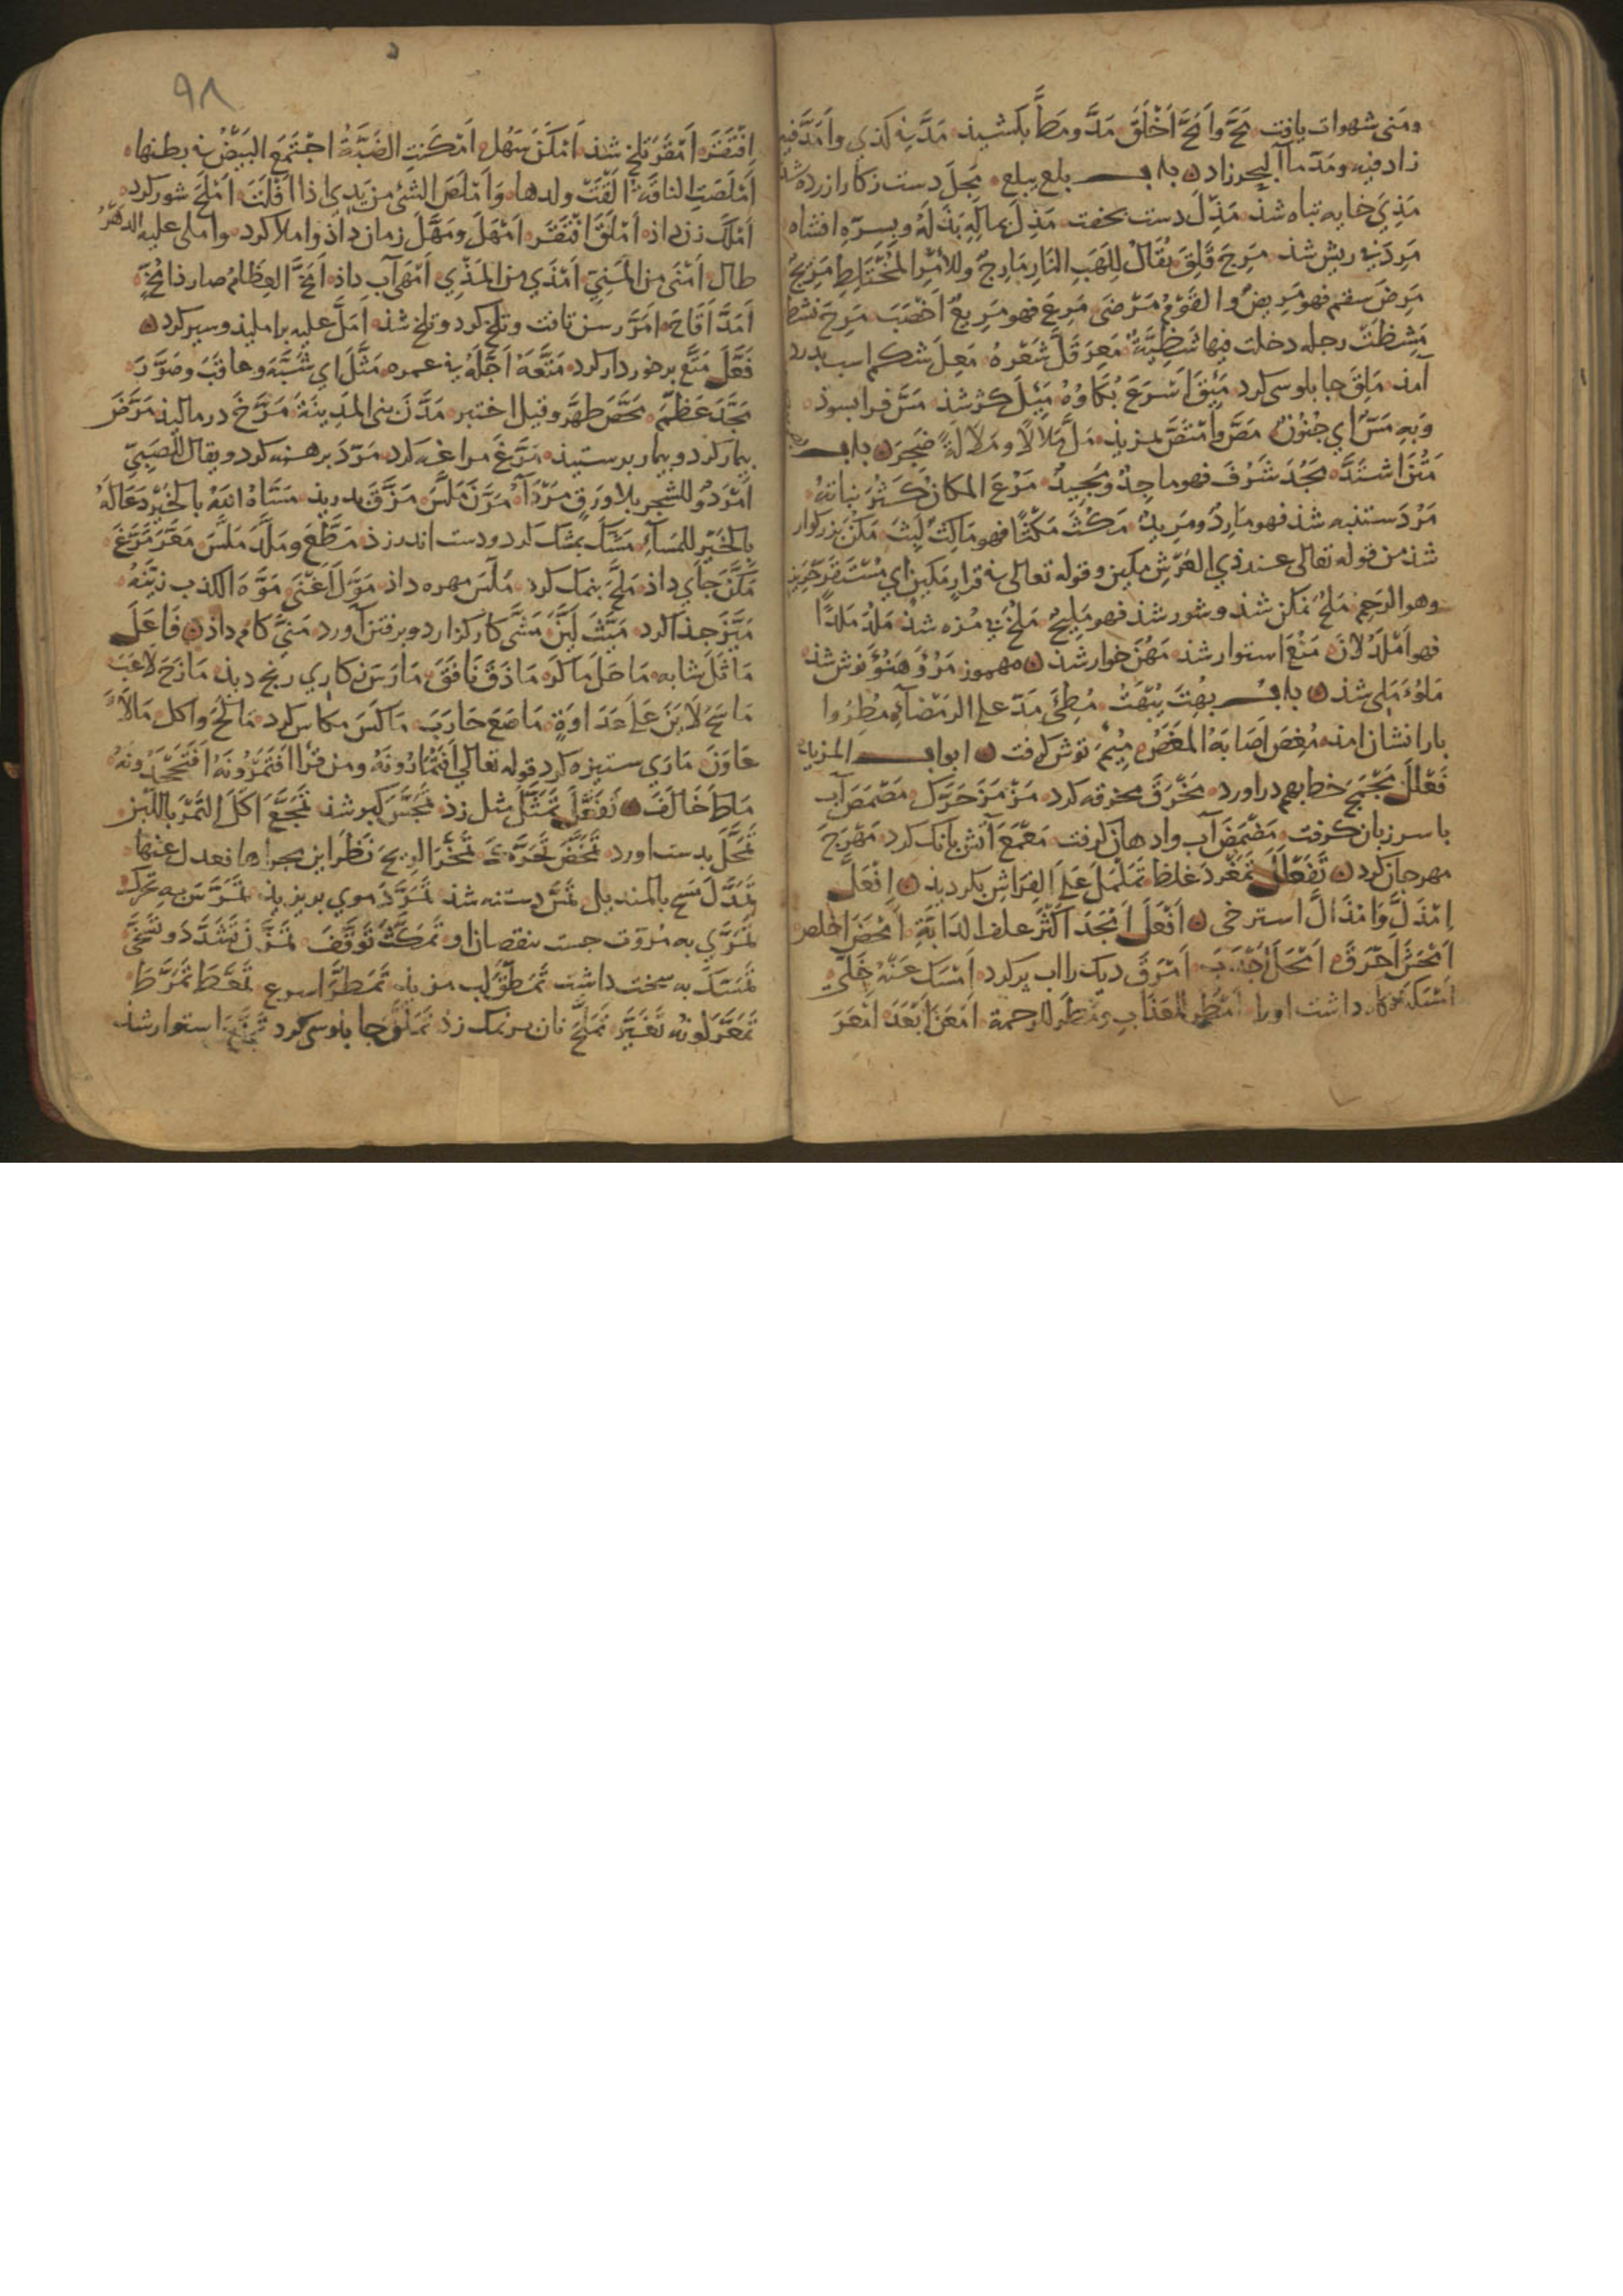 ومَنى شهوات يافت مَحَّ وأَمَحَّ أَخْلَقَ مَدَّ ومَطَّ بكشيد مَدَّ به كذي وأَمَدَّ فيه
زاد فيه ومَدَّ ماءُ البحر زاد باب بلع يبلع مَجِلَ دست از كار ازرده شد
مَذِرَ خايه تباه شذ مَذِلَ دست بخفت مَذِلَ بماله بَذَلَهُ وبسرِّه افشاه
مَرِدَ بى ريش شذ مَرِجَ قَلِقَ يُقَالُ لِلَهَبِ النَّارِ مَارِجٌ وللأَمْرِ المُخْتَلِطِ مَرِيجٌ
مَرِضَ سقم فهو مَرِيضٌ والقَوْمُ مَرْضَى مَرِعَ فهو مَرِيعٌ أَخْصَبَ مَرِحَ نشط
مَشِظَتْ رجله دخلت فيها شَظِيَّةٌ مَعِرَ قَلَّ شَعْرُهُ مَعِلَ شكم اسب بدرد
آمد مَلِقَ جابلوسى كرد مَئِقَ أَسْرَعَ بُكَاؤُهُ مَيِلَ كژ شذ مَسَّ فرابسوذ
وَبِهِ مَسٌّ اي جُنُونٌ مَصَّ وامْتَصَّ بمزيد مَلَّ مَلَالًا ومَلَالَةً ضَجِرَ باب
مَتُنَ اشْتَدَّ مَجُدَ شَرُفَ فهو ماجِدٌ ومَجِيدٌ مَرُعَ المكان كَثُرَ نباته
مَرُدَ ستنبه شذ فهو مَارِدٌ ومَرِيدٌ مَكُثَ مَكْثًا فهو مَاكِثٌ لَبِثَ مَكُنَ بزركوار
شذ من قوله تعالى عند ذي العَرْشِ مكين وقوله تعالى في قرارٍ مَكِين اي مُسْتَقَرٍّ حَرِيز
وهو الرَحِم مَلُحَ نمكن شذ وشور شذ فهو مَلِيحٌ مَلُخَ بى مزه شذ مَلُدَ مَلَدًا
فهو أَمْلَدُ لَانَ مَنُعَ استوار شذ مَهُنَ خوار شذ مهموز مَرُؤَ وهَنُؤَ نوش شذ
مَلُؤَ مَلِى شذ باب بُهِتَ يُبْهَتُ مُطِئَ مَدَّ على الرمضاء مُطِرُوا
بارانشان امد مُغِصَ أَصَابَهُ المَغَصُ مِيْمَ توش كرفت ابواب المزيدات
فَعْلَلَ مَجْمَجَ خطابهم دراورد مَخْرَقَ مخرقه كرد مَزْمَزَ حَرَّك مَصْمَصَ آب
با سر زبان كرفت مَضْمَضَ آب وا دهان كرفت مَعْمَعَ آتش بانك كرد مَهْرَجَ
مهرجان كرد تَفَعْلَلَ تَمَغْرَدَ غلظ تَمَلْمَلَ عَلَى الفِرَاشِ بكرديد افْعَلَّ
امْذَلَّ وَامْذَالَّ استرخى أَفْعَلَ أَمْجَدَ أَكْثَرَ علف الدَّابَّةِ أَمْحَضَ اخلص
أَمْحَشَ أَحْرَقَ أَمْحَلَ أَجْدَبَ أَمْرَقَ ديك را اب پر كرد أَمْسَكَ عَنْهُ خَلَّى
أَمْسَكَهُ نكاه داشت اورا أَمْطَرَ للعذاب ومَطَرَ للرحمة أَمْعَنَ أَبْعَدَ أَمْعَرَ
٩٨
افْتَقَرَ أَمْقَرَ تلخ شذ أَمْكَنَ سَهُلَ أَمْكَنَتِ الضَّبَّةُ اجْتَمَعَ البَيْضُ في بطنها
أَمْلَصَتِ الناقةُ أَلْقَتْ ولدها وَأَمْلَصَ الشئ من يَدِي اذا أَفْلَتَ أَمْلَحَ شور كرد
أَمْلَكَ زن داد أَمْلَقَ افْتَقَرَ أَمْهَلَ ومَهَّلَ زمان داذ واملا كرد واملى عليه الدهرُ
طال أَمْنَى من المَنِيّ أَمْذَي من المَذْي أَمْهَى آب داذ أَمَخَّ العِظَامُ صار ذا مُخٍّ
أَمَدَّ أَقَاحَ أَمَرَّ رسن تافت وتلخ كرد وتلخ شذ أَمَلَّ عليه براملید وسير كرد
فَعَّلَ مَتَّعَ برخوردار كرد مَتَّعَهُ أَجَّلَهُ في عمره مَثَّلَ اي شَبَّهَ وعاقَبَ وصَوَّرَ
مَجَّدَ عَظَّمَ مَحَّصَ طهَّر وقيل اختبر مَدَّنَ بنى المَدِينَةَ مَرَّخَ در ماليد مَرَّضَ
بيمار كرد وبيمار برستيد مَرَّغَ مراغه كرد مَرَّدَ برهنه كرد ويقال للصَّبِيّ
أَمْرَدُ وللشجر بلا ورق مَرْدَاءُ مَرَّنَ مَلَّسَ مَزَّقَ بدريد مَسَّاهُ اللهُ بالخَيْر دَعَا لَهُ
بالخَيْر للمَسَاءِ مَسَّكَ بمشك كرد ودست اندر زد مَطَّعَ ومَلَّدَ مَلَّسَ مَعَّرَ مَرَّغَ
مَكَّنَ جاي داذ مَلَّحَ بنمك كرد مَلَّسَ مهره داذ مَوَّلَ أَغْنَى مَوَّهَ الكذب زَيَّنَهُ
مَيَّزَ جذا كرد مَيَّثَ لَيَّنَ مَشَّى كار كزارد وبرفتن آورد مَنَّى كام داذ فَاعَلَ
مَاثَلَ شابه مَاحَلَ مَاكَرَ مَاذَقَ نَافَقَ مَارَسَ در كاري رنج ديد مَازَحَ لَاعَبَ
مَاسَحَ لَايَنَ عَلَى عَدَاوَةٍ مَاصَعَ حَارَبَ مَاكَسَ مكاس كرد مَالَحَ وَاكل مَالَأَ
عَاوَنَ مَارَي ستيزه كرد قوله تعالي أَفَتُمَارُونَهُ ومن قرأ أَفَتَمْرُونَهُ أَفَتَجْحَدُونَهُ
مَاطَ خَالَفَ تَفَعَّلَ تَمَثَّلَ مثل زد تَمَجَّسَ كبر شذ تَمَجَّعَ أَكَلَ التَّمْرَ باللَّبَن
تَمَحَّلَ بدست اورد تَمَخَّضَ تَحَرَّكَ تَمَخَّرَ الريحَ نظر این مجراها فعدل عنها
تَمَدَّلَ تَمَسَّح بالمنديل تمرد ستنبه شذ تَمَرَّدَ موي بريزيد تَمَرَّسَ بِهِ تحرك
تَمَرَّي به مُرُوَّت جست بنقصان او تَمَكَّثَ تَوَقَّفَ تَمَزَّنَ تَشَدَّدَ وتَسَخَّى
تَمَسَّكَ به سخت داشت تَمَطَّقَ لب مزيد تَمَطَّرَ اسرع تَمَعَّطَ تَمَرَّطَ
تَمَعَّرَ لونُه تَغَيَّرَ تَمَلَّحَ نان بر نمك زد تَمَلَّقَ جابلوسى كرد تَمَنَّعَ استوار شذ